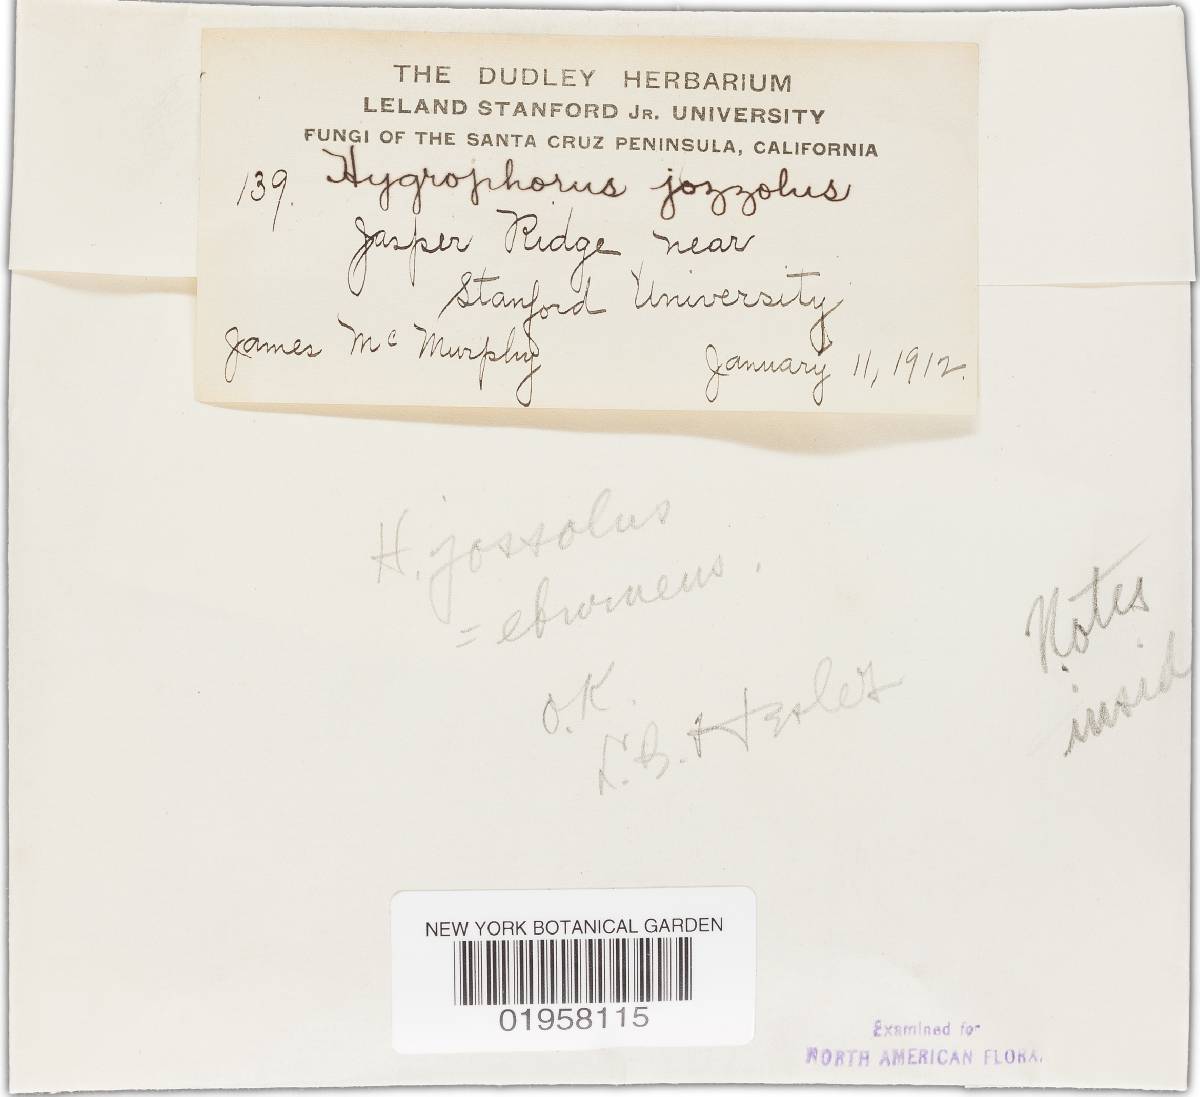 THE DUDLEY HERBARIUM
LELAND STANFORD JR. UNIVERSITY
FUNGI OF THE SANTA CRUZ PENINSULA, CALIFORNIA
139. Hygrophorus jozzolus
Jasper Ridge near
Stanford University
James Mc Murphy January 11, 1912.
H. jossolus
= eburneus.
O.K.
L.R. Hesler
Notes
insid
NEW YORK BOTANICAL GARDEN
01958115
Examined for
NORTH AMERICAN FLORA.